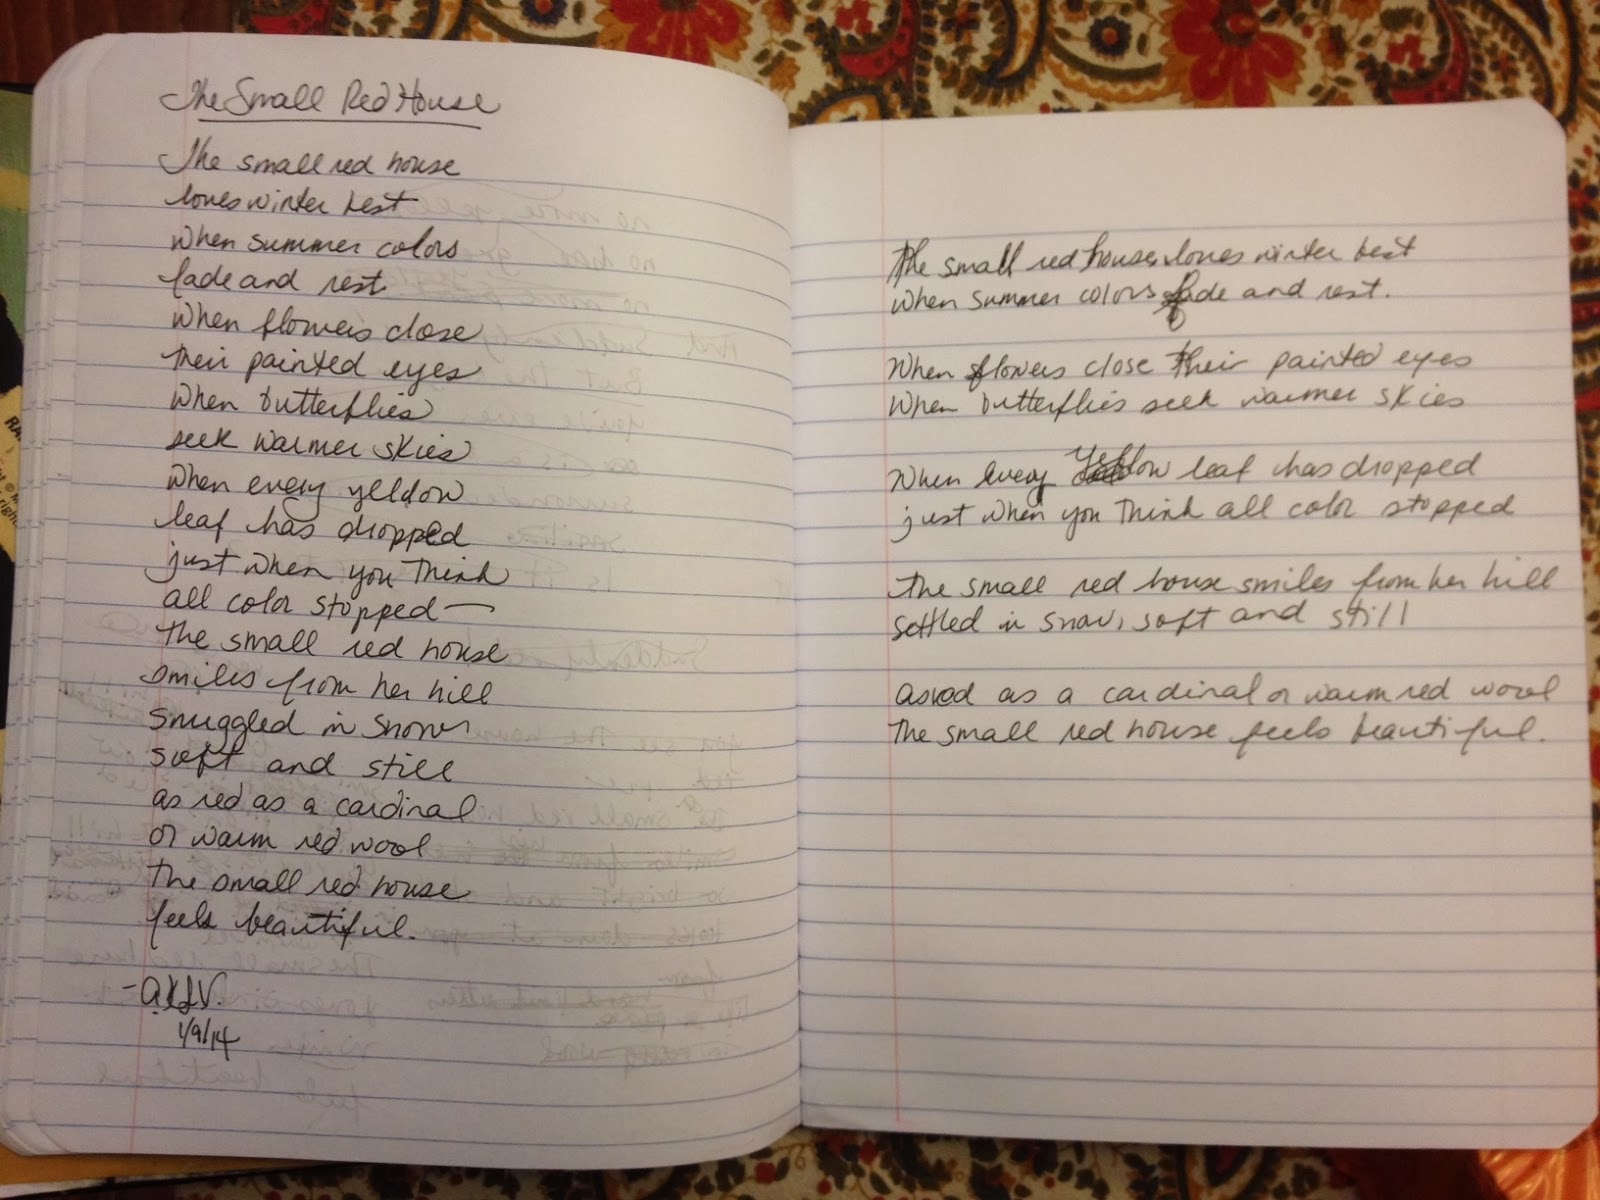 The Small Red House
The small red house
loves winter best
when summer colors
fade and rest
When flowers close
their painted eyes
When butterflies
seek warmer skies
When every yellow
leaf has dropped
just when you think
all color stopped —
the small red house
smiles from her hill
snuggled in snow
soft and still
as red as a cardinal
or warm red wool
the small red house
feels beautiful.
- ALV.
1/9/14
The small red house loves winter best
when summer colors fade and rest.
When flowers close their painted eyes
When butterflies seek warmer skies
When every yellow leaf has dropped
just when you think all color stopped
the small red house smiles from her hill
settled in snow, soft and still
as red as a cardinal or warm red wool
the small red house feels beautiful.